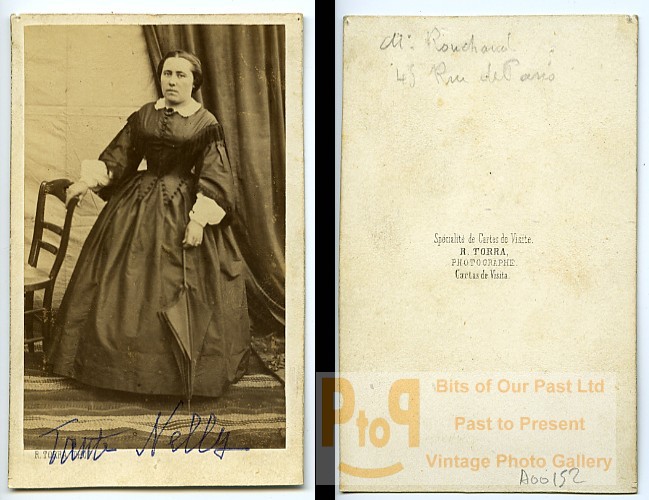 Tante Nelly
R. TORRA
Mr. Rouchand
45 Rue de Paris
Spécialité de Cartes de Visite.
R. TORRA,
PHOTOGRAPHE.
Cartes de Visita.
PtoP
Bits of Our Past Ltd
Past to Present
Vintage Photo Gallery
A00152